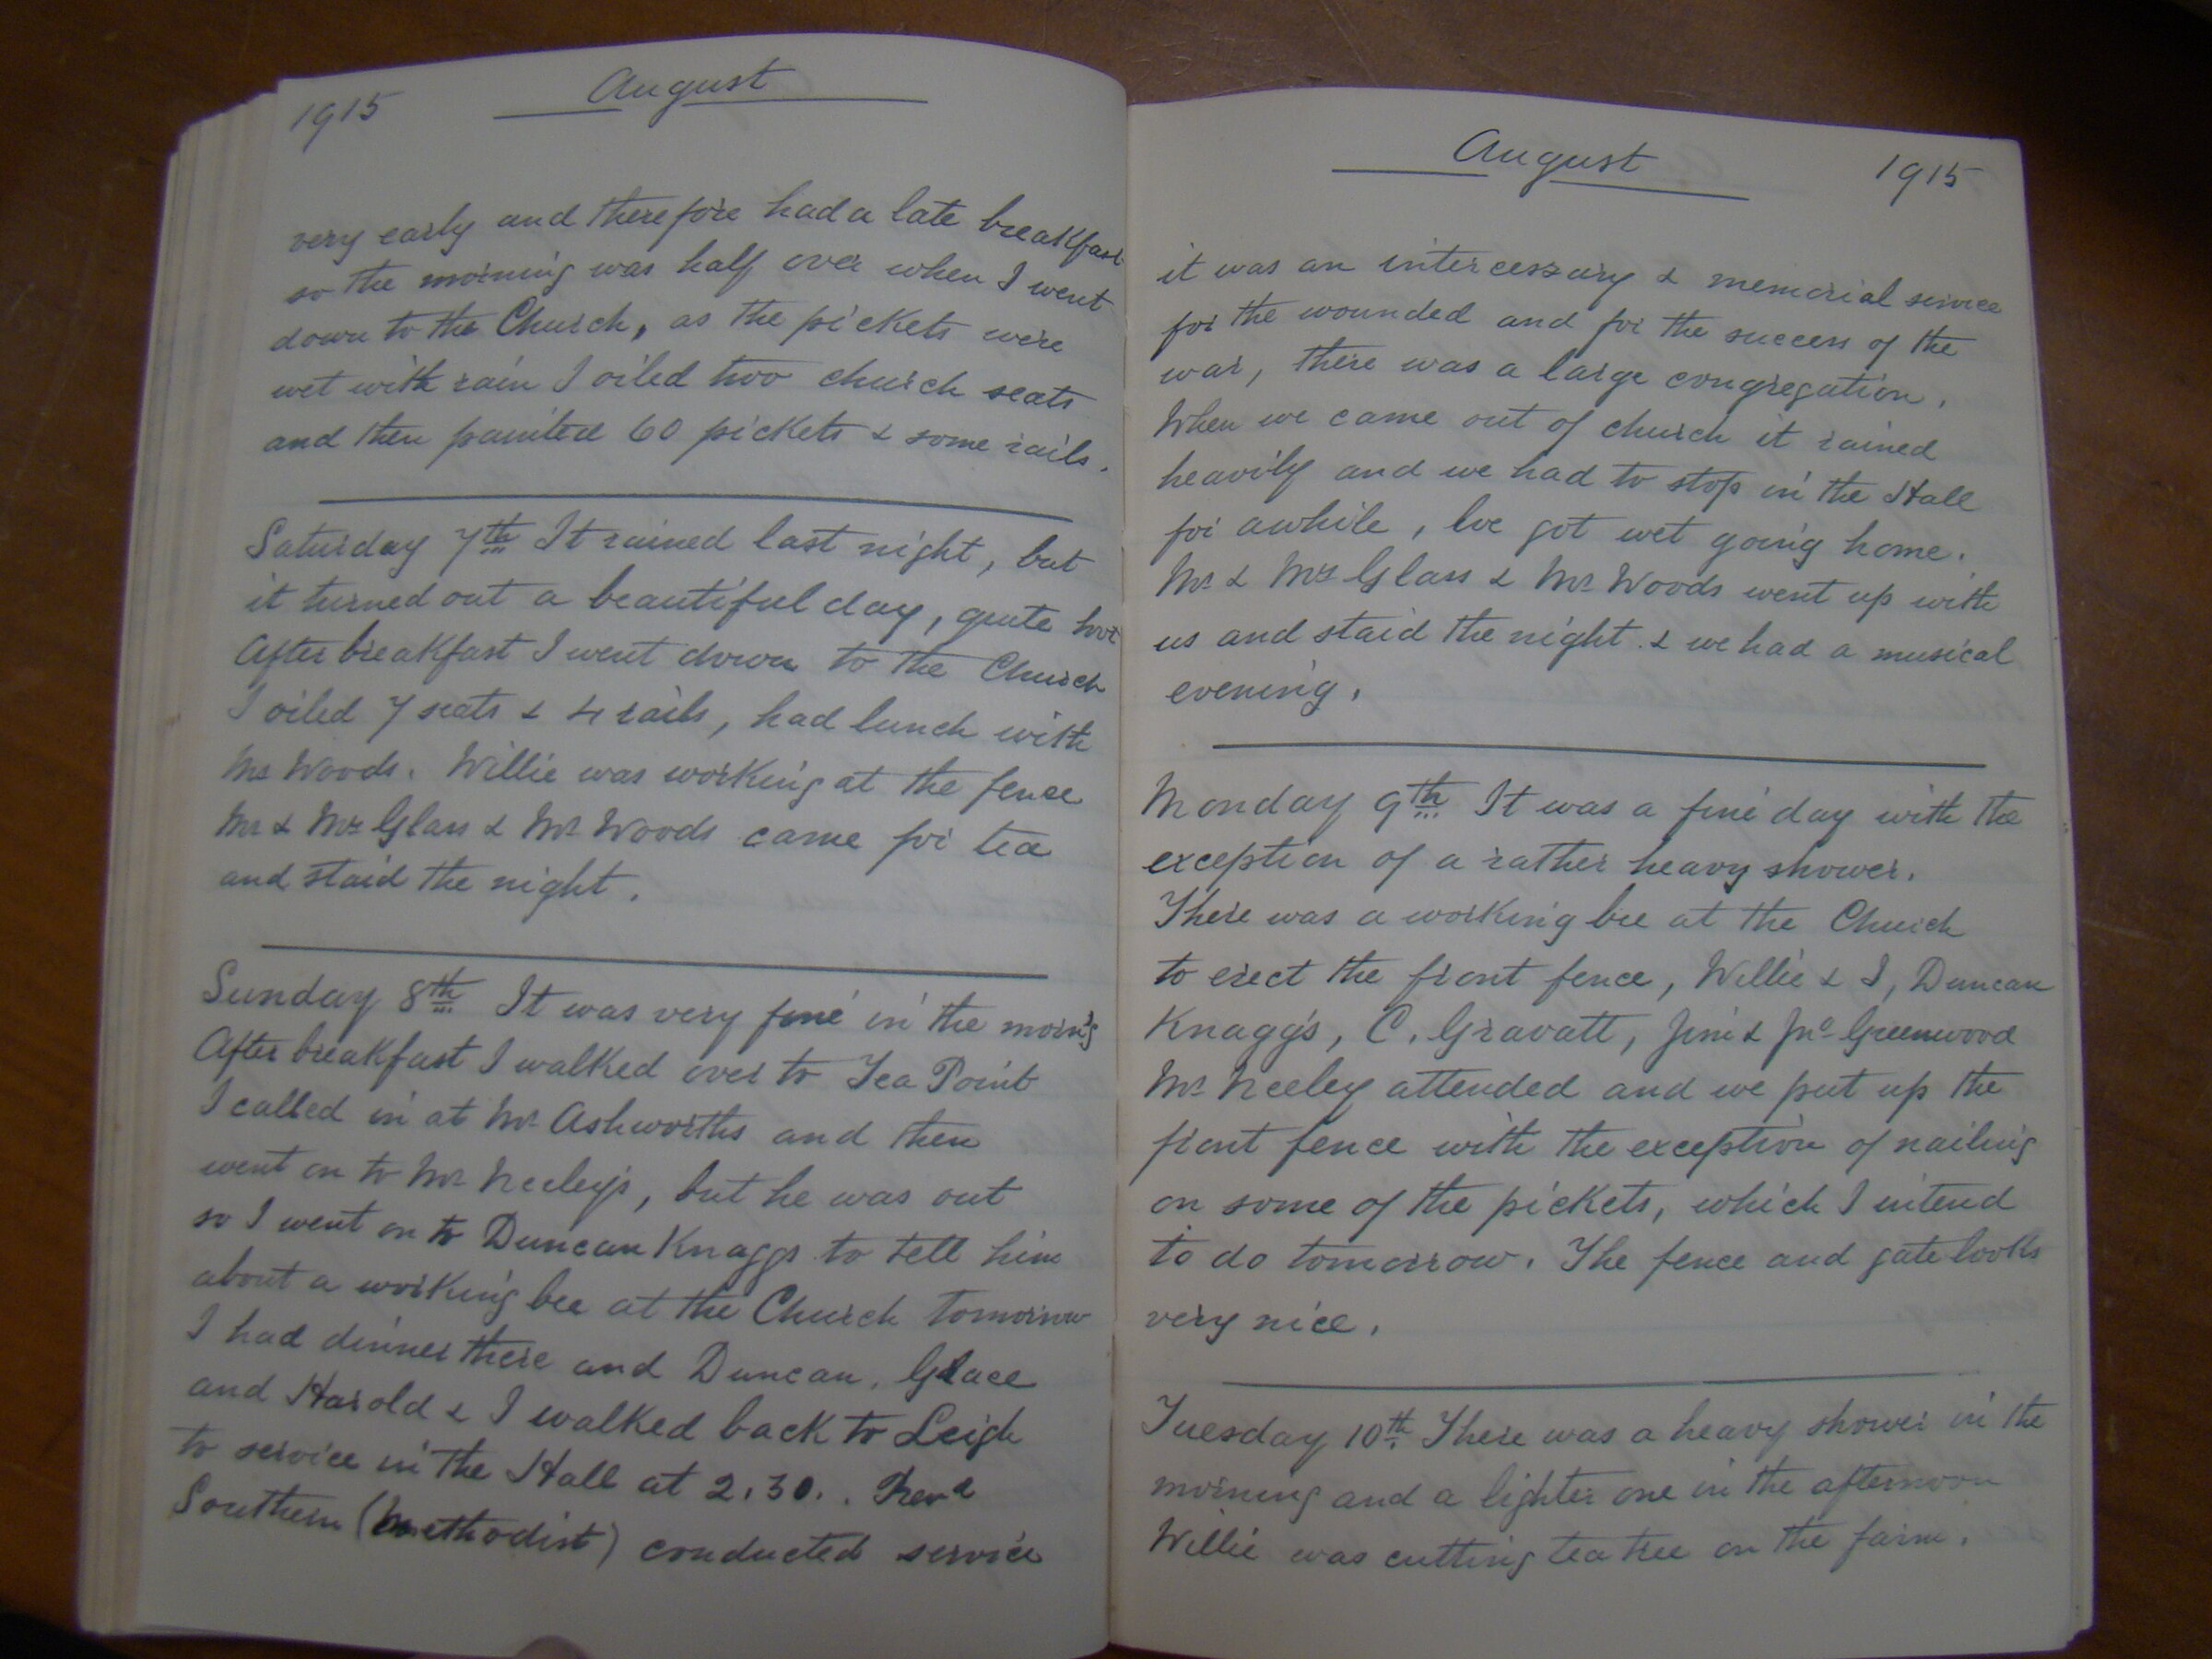 1915
August
very early and therefore had a late breakfast
so the morning was half over when I went
down to the Church, as the pickets were
wet with rain I oiled two church seats
and then painted 60 pickets & some rails.
Saturday 7th It rained last night, but
it turned out a beautiful day, quite hot
After breakfast I went down to the Church
I oiled 7 seats & 4 rails, had lunch with
Mr Woods. Willie was working at the fence
Mr & Mrs Glass & Mr Woods came for tea
and staid the night.
Sunday 8th It was very fine in the morng
After breakfast I walked over to Tea Point
I called in at Mr Ashworths and then
went on to Mr Neeley's, but he was out
so I went on to Duncan Knaggs to tell him
about a working bee at the Church tomorrow
I had dinner there and Duncan, Grace
and Harold & I walked back to Leigh
to service in the Hall at 2.30.. Revd
Southern (Methodist) conducted service
August
1915
it was an intercessary & memorial service
for the wounded and for the success of the
war, there was a large congregation.
When we came out of church it rained
heavily and we had to stop in the Hall
for awhile, we got wet going home.
Mr & Mrs Glass & Mr Woods went up with
us and staid the night. & we had a musical
evening.
Monday 9th It was a fine day with the
exception of a rather heavy shower.
There was a working bee at the Church
to erect the front fence, Willie & I, Duncan
Knaggs, C. Gravatt, Jim & Jno Greenwood
Mr Neeley attended and we put up the
front fence with the exception of nailing
on some of the pickets, which I intend
to do tomorrow. The fence and gate looks
very nice.
Tuesday 10th There was a heavy shower in the
morning and a lighter one in the afternoon
Willie was cutting tea tree on the farm.